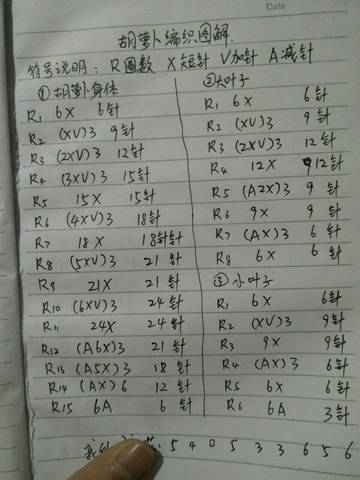 Date
胡萝卜编织图解
符号说明：R圈数 X短针 V加针 A减针
①胡萝卜身体
R1 6X 6针
R2 (XV)3 9针
R3 (2XV)3 12针
R4 (3XV)3 15针
R5 15X 15针
R6 (4XV)3 18针
R7 18X 18针针
R8 (5XV)3 21针
R9 21X 21针
R10 (6XV)3 24针
R11 24X 24针
R12 (A6X)3 21针
R13 (A5X)3 18针
R14 (AX)6 12针
R15 6A 6针
②大叶子
R1 6X 6针
R2 (XV)3 9针
R3 (2XV)3 12针
R4 12X 12针
R5 (A2X)3 9针
R6 9X 9针
R7 (AX)3 6针
R8 6X 6针
③小叶子
R1 6X 6针
R2 (XV)3 9针
R3 9X 9针
R4 (AX)3 6针
R5 6X 6针
R6 6A 3针
我的 5 4 0 5 3 3 6 5 6